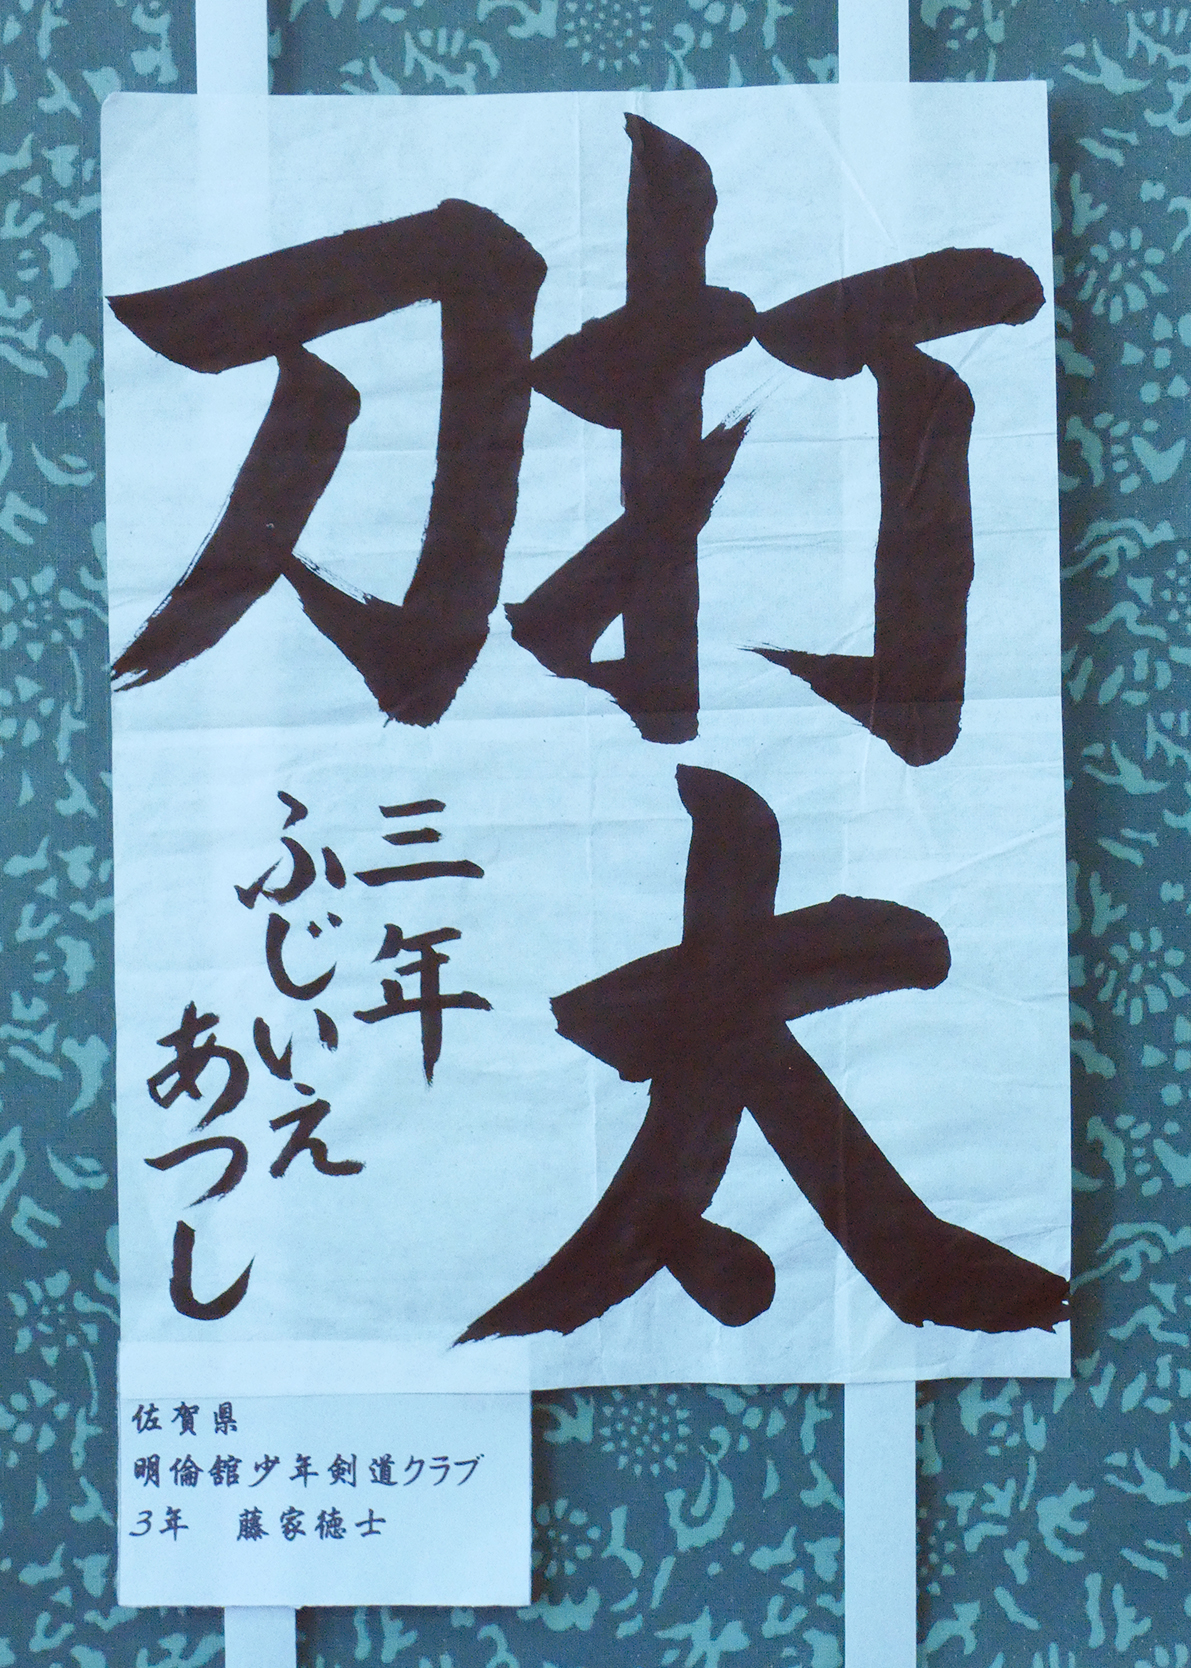 打太
刀
三年
ふじいえ
あつし
佐賀県
明倫舘少年剣道クラブ
3年 藤家徳士